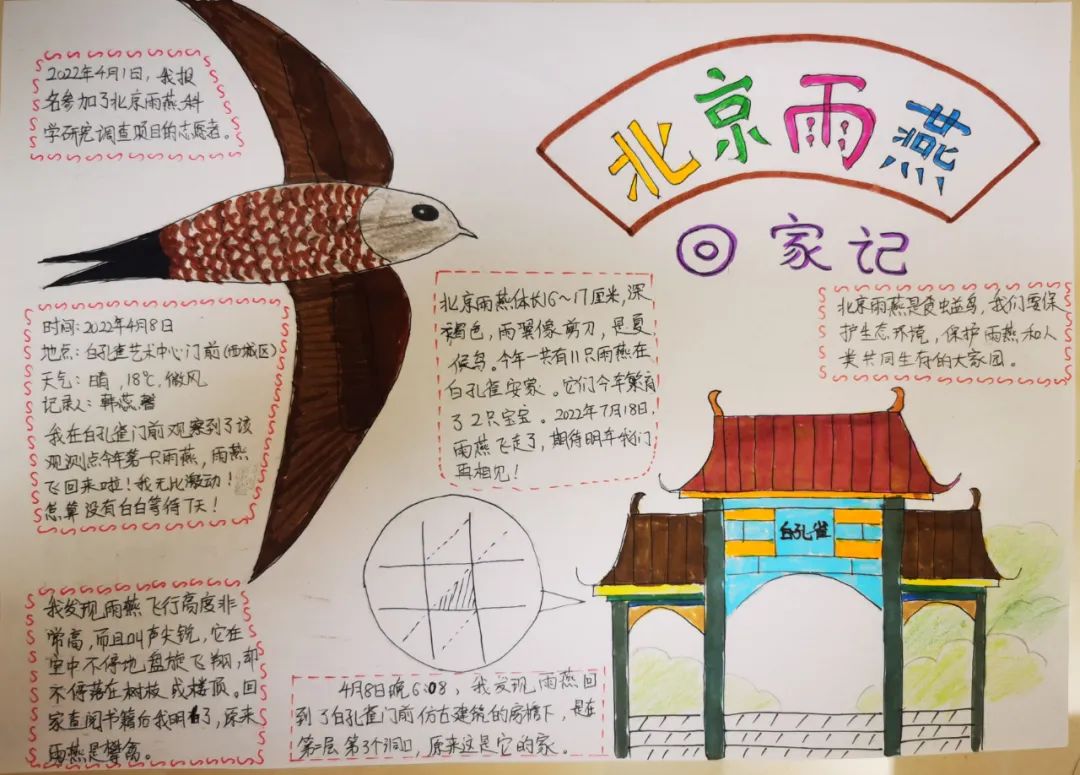 北京雨燕
回家记
2022年4月1日，我报
名参加了北京雨燕科
学研究调查项目的志愿者。
时间：2022年4月8日
地点：白孔雀艺术中心门前(西城区)
天气：晴，18℃，微风
记录人：韩蕊馨
我在白孔雀门前观察到了该
观测点今年第一只雨燕，雨燕
飞回来啦！我无比激动！
怎算没有白白等待7天！
我发现雨燕飞行高度非
常高，而且叫声尖锐，它在
空中不停地盘旋飞翔，却
不停落在树枝或楼顶。回
家查阅书籍后我明白了，原来
雨燕是攀禽。
北京雨燕体长16～17厘米，深
褐色，雨翼像剪刀，是夏
候鸟。今年一共有11只雨燕在
白孔雀安家。它们今年繁育
了2只宝宝。2022年7月18日，
雨燕飞走了，期待明年我们
再相见！
4月8日晚6:08，我发现雨燕回
到了白孔雀门前仿古建筑的房檐下，是在
第二层第3个洞口，原来这是它的家。
北京雨燕是食虫益鸟，我们要保
护生态环境，保护雨燕和人
类共同生存的大家园。
白孔雀